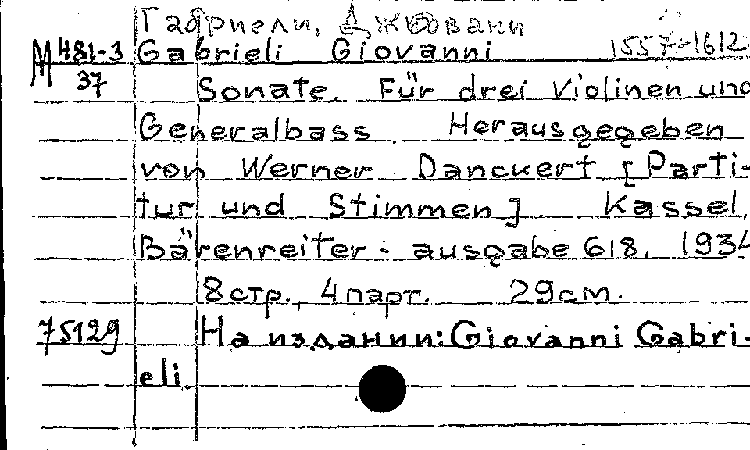 Габриели, Джовани
М 481-3 Gabrieli Giovanni 1557-1612
37 Sonate. Für drei Violinen und
Generalbass Herausgegeben
von Werner Danckert [Parti-
tur und Stimmen] Kassel,
Bärenreiter - ausgabe 618, 1934
8 стр., 4 парт. 29 см.
75129 На издании: Giovanni Gabri-
eli.